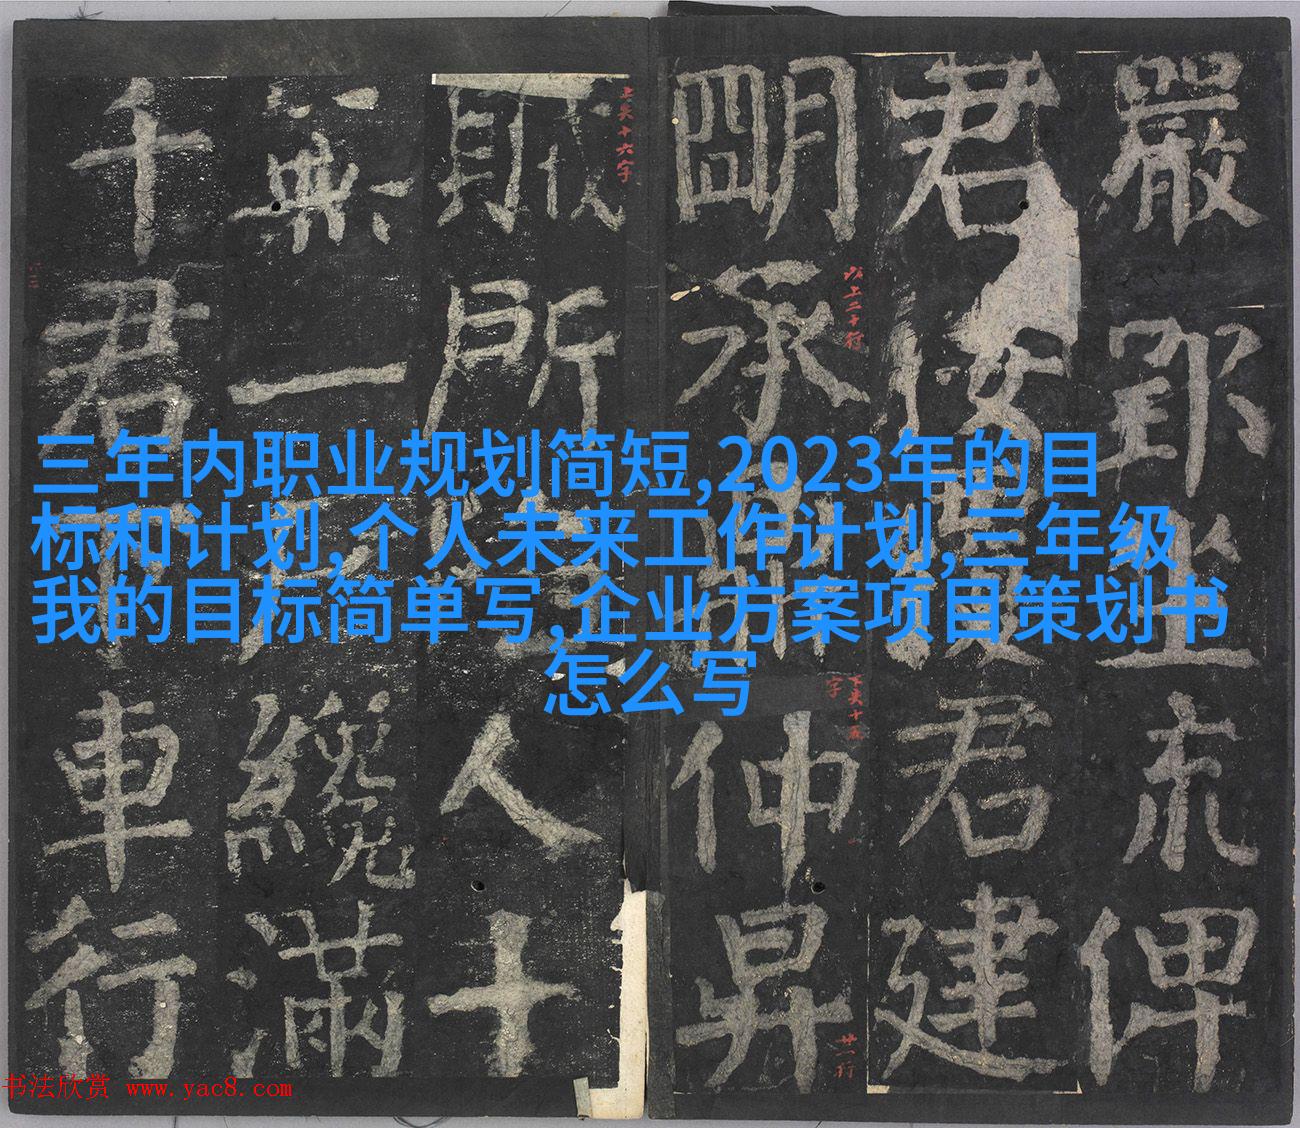 三年内职业规划简短,2023年的目
标和计划,个人未来工作计划,三年级
我的目标简单写,企业方案项目策划书
怎么写
嚴郎未俾
君君建
朙承仲昇
以上二十行
下失十五字
廿一行
上失十六字
所人十
無一纔滿
千君車行
书法欣赏 www.yac8.com